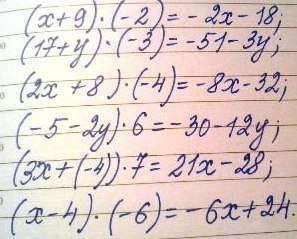 (x+9)·(-2)=-2x-18;
(17+y)·(-3)=-51-3y;
(2x+8)·(-4)=-8x-32;
(-5-2y)·6=-30-12y;
(3x+(-4))·7=21x-28;
(x-4)·(-6)=-6x+24.